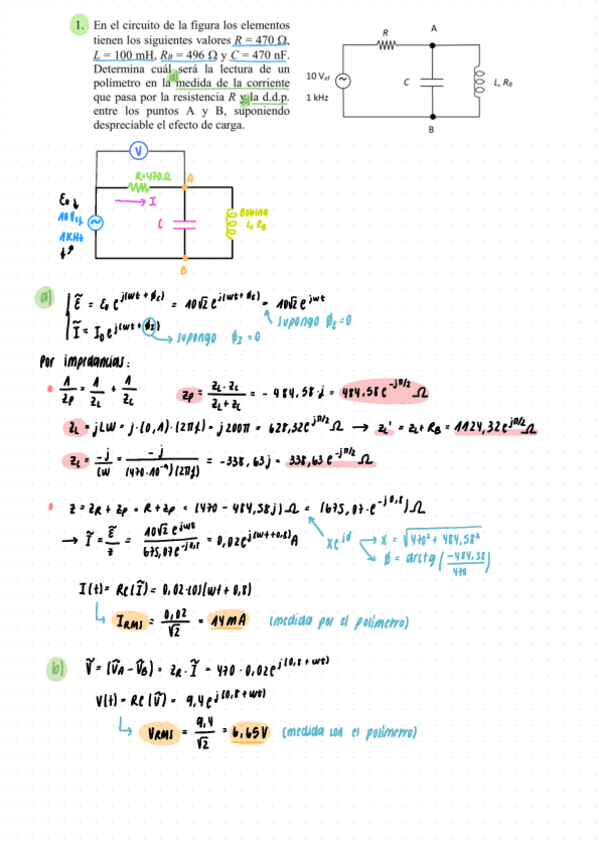 1. En el circuito de la figura los elementos
tienen los siguientes valores R = 470 Ω,
L = 100 mH, R_B = 496 Ω y C = 470 nF.
Determina cuál será la lectura de un
polímetro en la medida de la corriente
que pasa por la resistencia R y la d.d.p.
entre los puntos A y B, suponiendo
despreciable el efecto de carga.
R
A
10 V_ef
1 kHz
C
L, R_B
B
V
R=470Ω
A
I
E₀
10V_ef
1KHz
f
C
Bobina
L, R_B
B
a)
Ẽ = ε₀ e^{j(wt + ϕ_ε)} = 10√2 e^{j(wt + ϕ_ε)} = 10√2 e^{jwt}
supongo ϕ_ε = 0
Ĩ = I₀ e^{j(wt + ϕ_I)}
supongo ϕ_I = 0
Por impedancias:
1/Z_P = 1/Z_L + 1/Z_C
Z_P = Z_L · Z_C / Z_L + Z_C = - 484,58 · j = 484,58 e^{-jπ/2} Ω
Z_L = jLW = j · (0,1) · (2πf) = j200π = 628,32 e^{jπ/2} Ω → Z_L' = Z_L + R_B = 1124,32 e^{jπ/2} Ω
= -j / CW = -j / (470·10⁻⁹)(2πf) = -338,63j = 338,63 e^{-jπ/2} Ω
Z = Z_R + Z_P = R + Z_P = (470 - 484,58j) Ω = (675,07 · e^{-j0,8}) Ω
→ Ĩ = Ẽ / Z = 10√2 e^{jwt} / 675,07 e^{-j0,8} = 0,02 e^{j(wt+0,8)} A
x e^{jϕ}
x = √(470² + 484,58²)
ϕ = arctg (-484,58 / 470)
I(t) = Re(Ĩ) = 0,02 · cos(wt + 0,8)
I_RMS = 0,02 / √2 = 14 mA (medida por el polímetro)
b) Ṽ = (Ṽ_A - Ṽ_B) = Z_R · Ĩ = 470 · 0,02 e^{j(0,8 + wt)}
V(t) = Re(Ṽ) = 9,4 e^{j(0,8 + wt)}
V_RMS = 9,4 / √2 = 6,65V (medida con el polímetro)